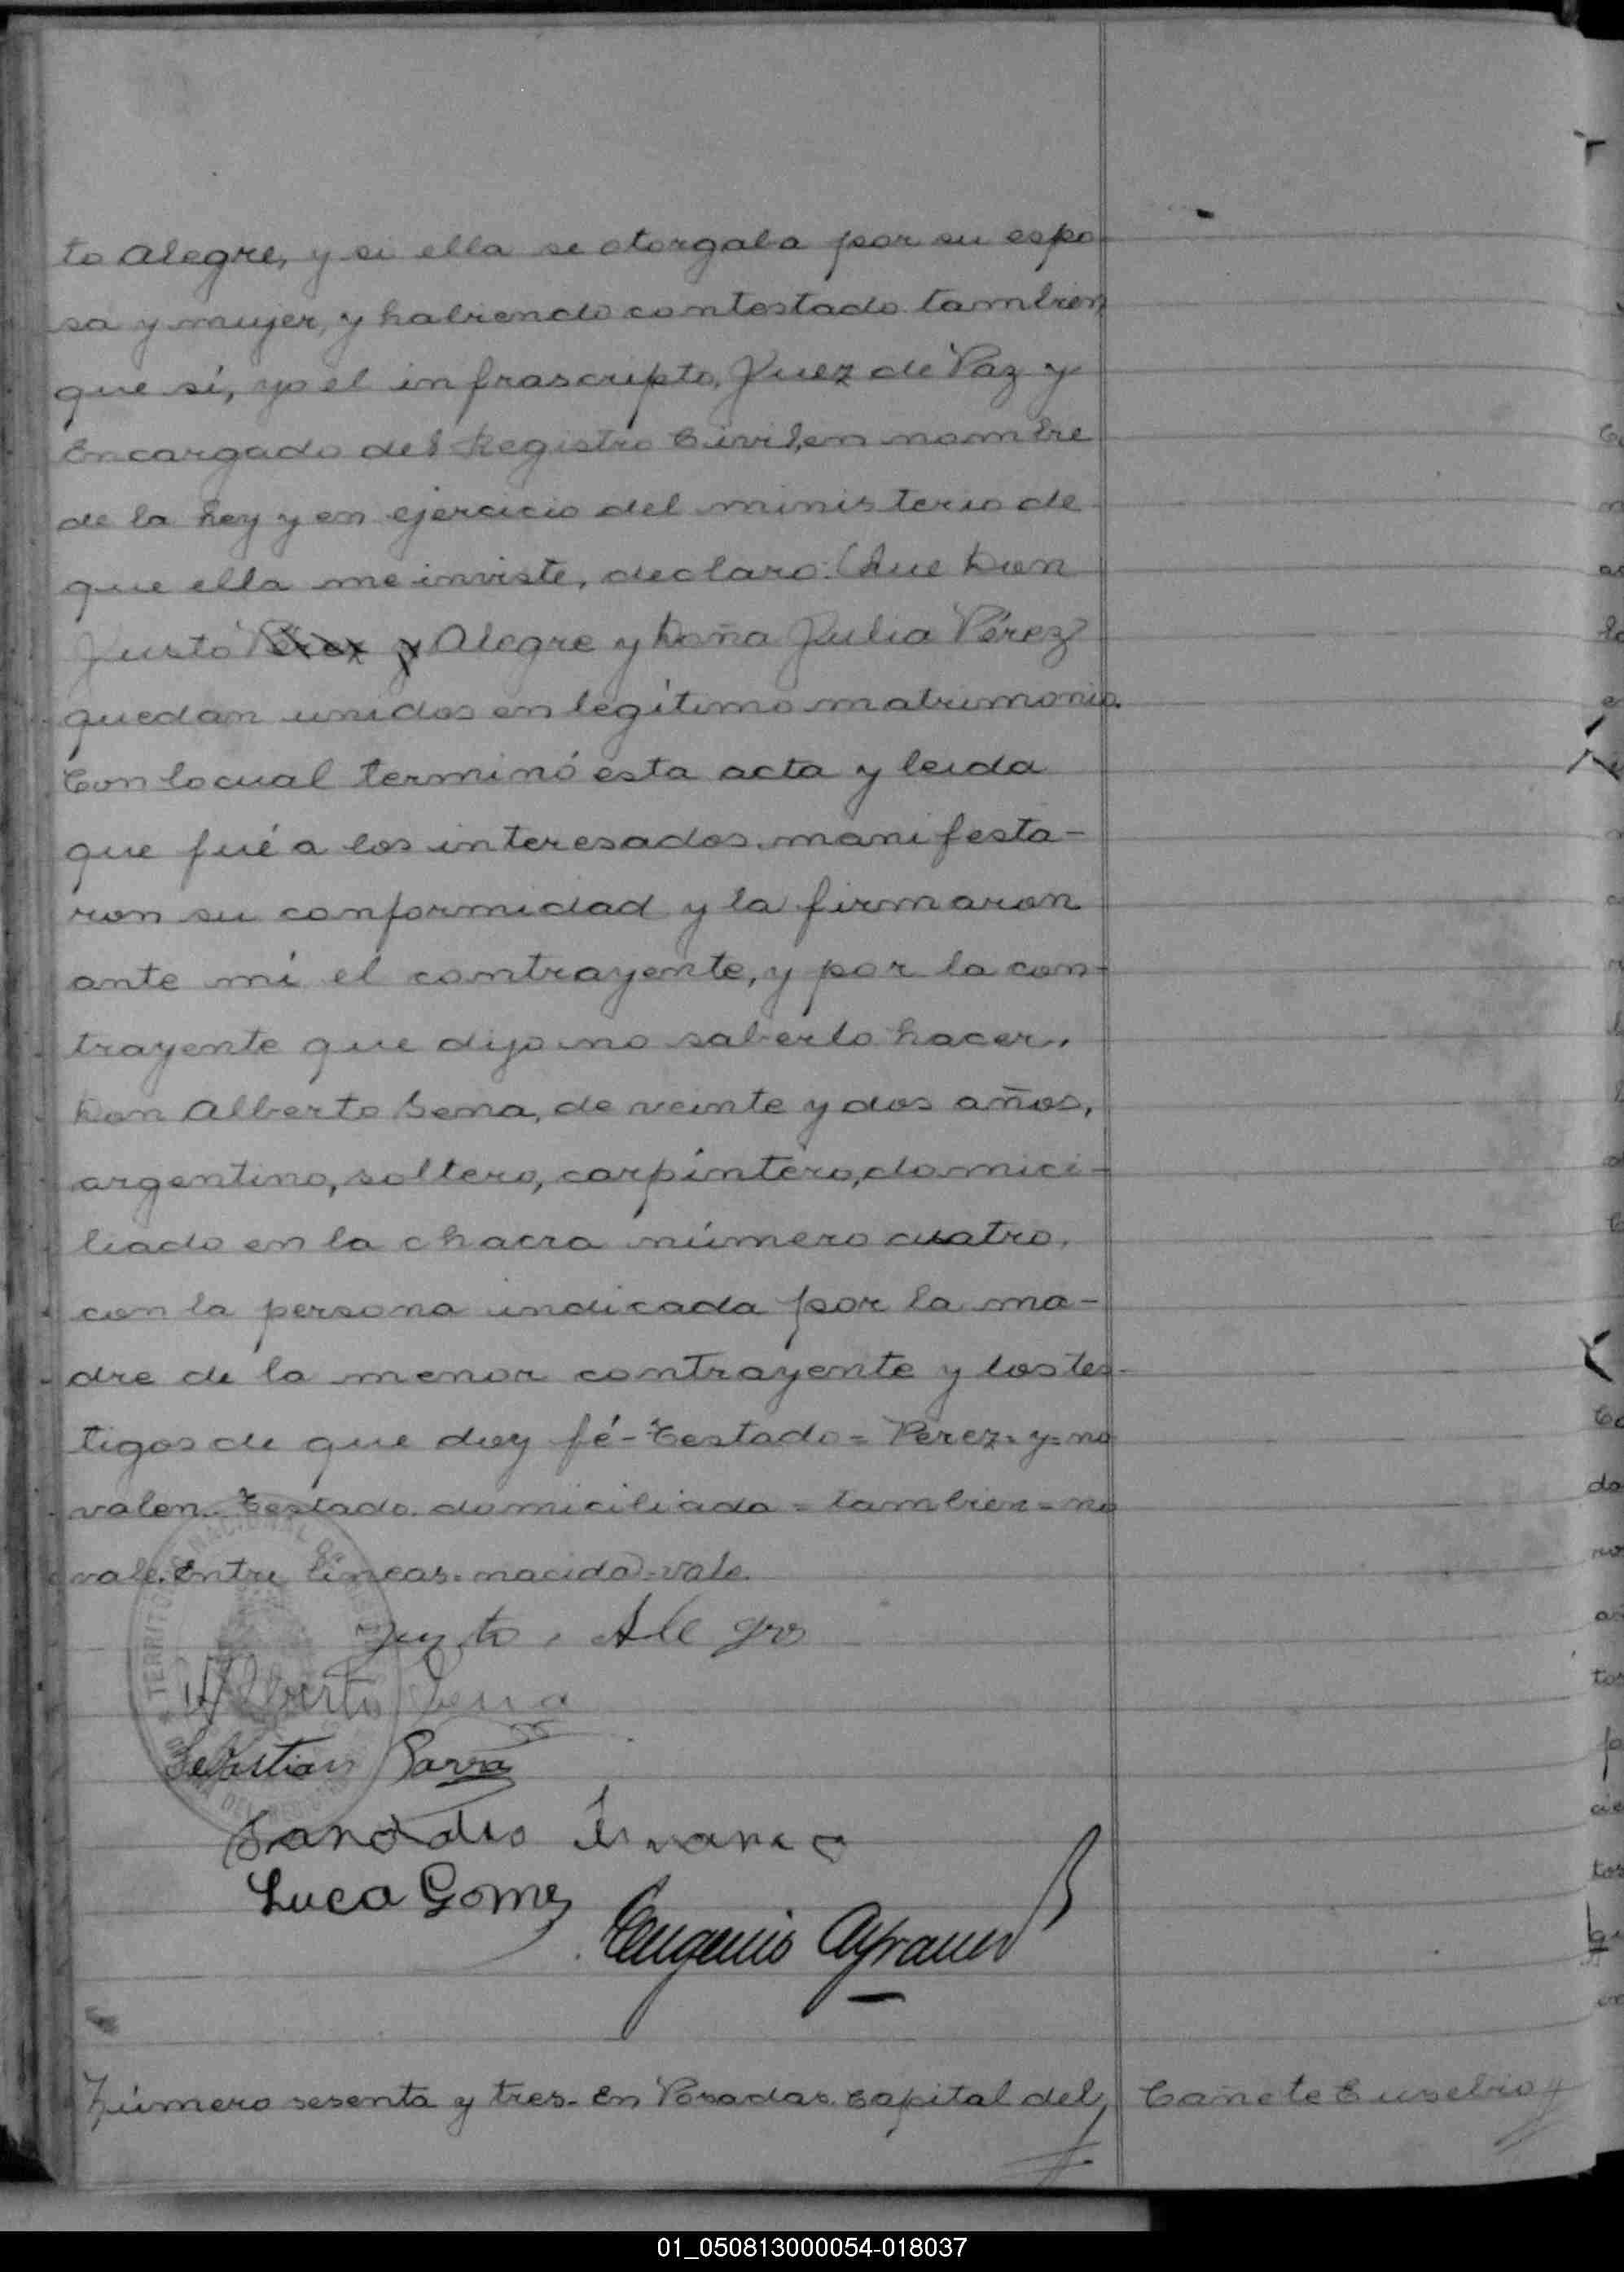 to Alegre, y si ella se otorgaba por su espo-
sa y mujer, y habiendo contestado tambien
que sí, yo el infrascripto, Juez de Paz y
Encargado del Registro Civil, en nombre
de la Ley y en ejercicio del ministerio de
que ella me inviste, declaro: Que Don
Justo Perez y Alegre y Doña Julia Pérez
quedan unidos en legítimo matrimonio.
Con lo cual terminó esta acta y leida
que fué a los interesados, manifesta-
ron su conformidad y la firmaron
ante mí el contrayente, y por la con-
trayente que dijo no saberlo hacer,
Don Alberto Sena, de veinte y dos años,
argentino, soltero, carpintero, domici-
liado en la chacra número cuatro,
con la persona indicada por la ma-
dre de la menor contrayente y los tes-
tigos de que doy fé - Testado = Perez = y = no
valen. Testado. domiciliada = tambien = no
vale. Entre líneas = nacida = vale.
Justo Alegre
Alberto Sena
Sebastian Parra
Luca Gomez
Eugenio
Número sesenta y tres. En Posadas, Capital del
Cañete Eusebio y
TERRITORIO NACIONAL DE MISIONES
01_050813000054-018037